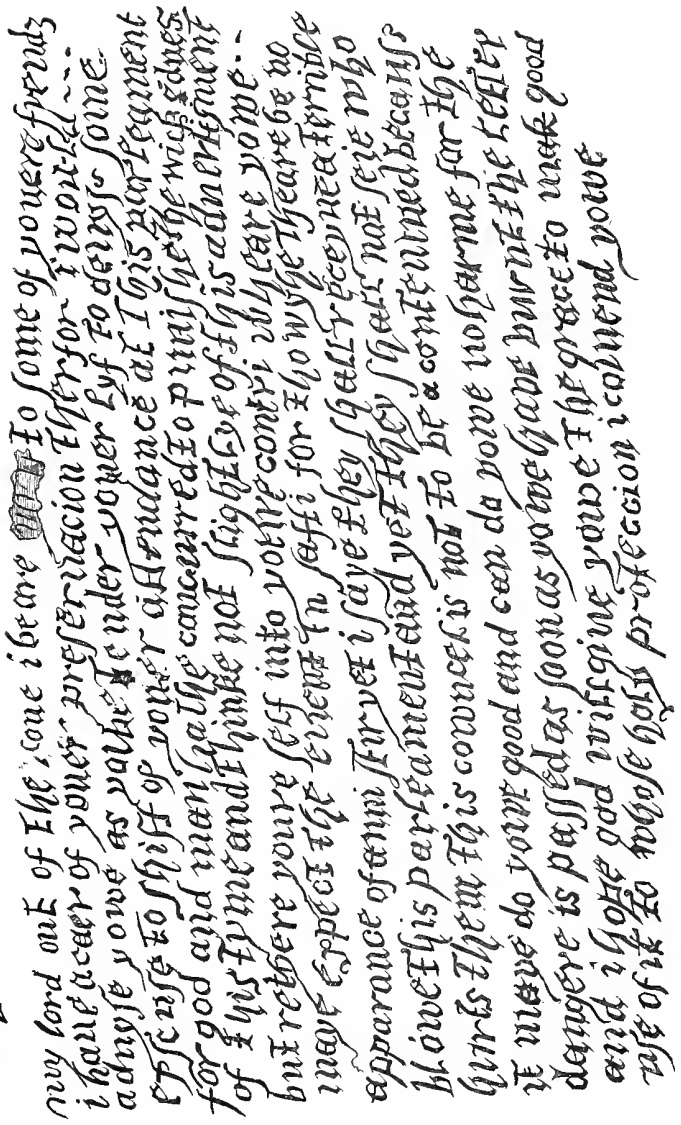 my lord out of the loue i beare to some of youere frendz
i haue a caer of youer preseruacion therfor i would
aduyse yowe as yowe tender youer lyf to deuyse some
epscuse to shift of youer attendance at this parleament
for god and man hathe concurred to punishe the wickednes
of this tyme and thinke not slightlye of this aduertisment
but retyere youre self into youre contri wheare yowe
maye expect the euent in safti for thowghe theare be no
apparance of anni stir yet i saye they shall receyue a terrible
blowe this parleament and yet they shall not seie who
hurts them this cowncel is not to be a contemned because
it maye do yowe good and can do yowe no harme for the
dangere is passed as soon as yowe haue burnt the letter
and i hope god will giue yowe the grace to mak good
use of it to whose holy proteccion i comend yowe